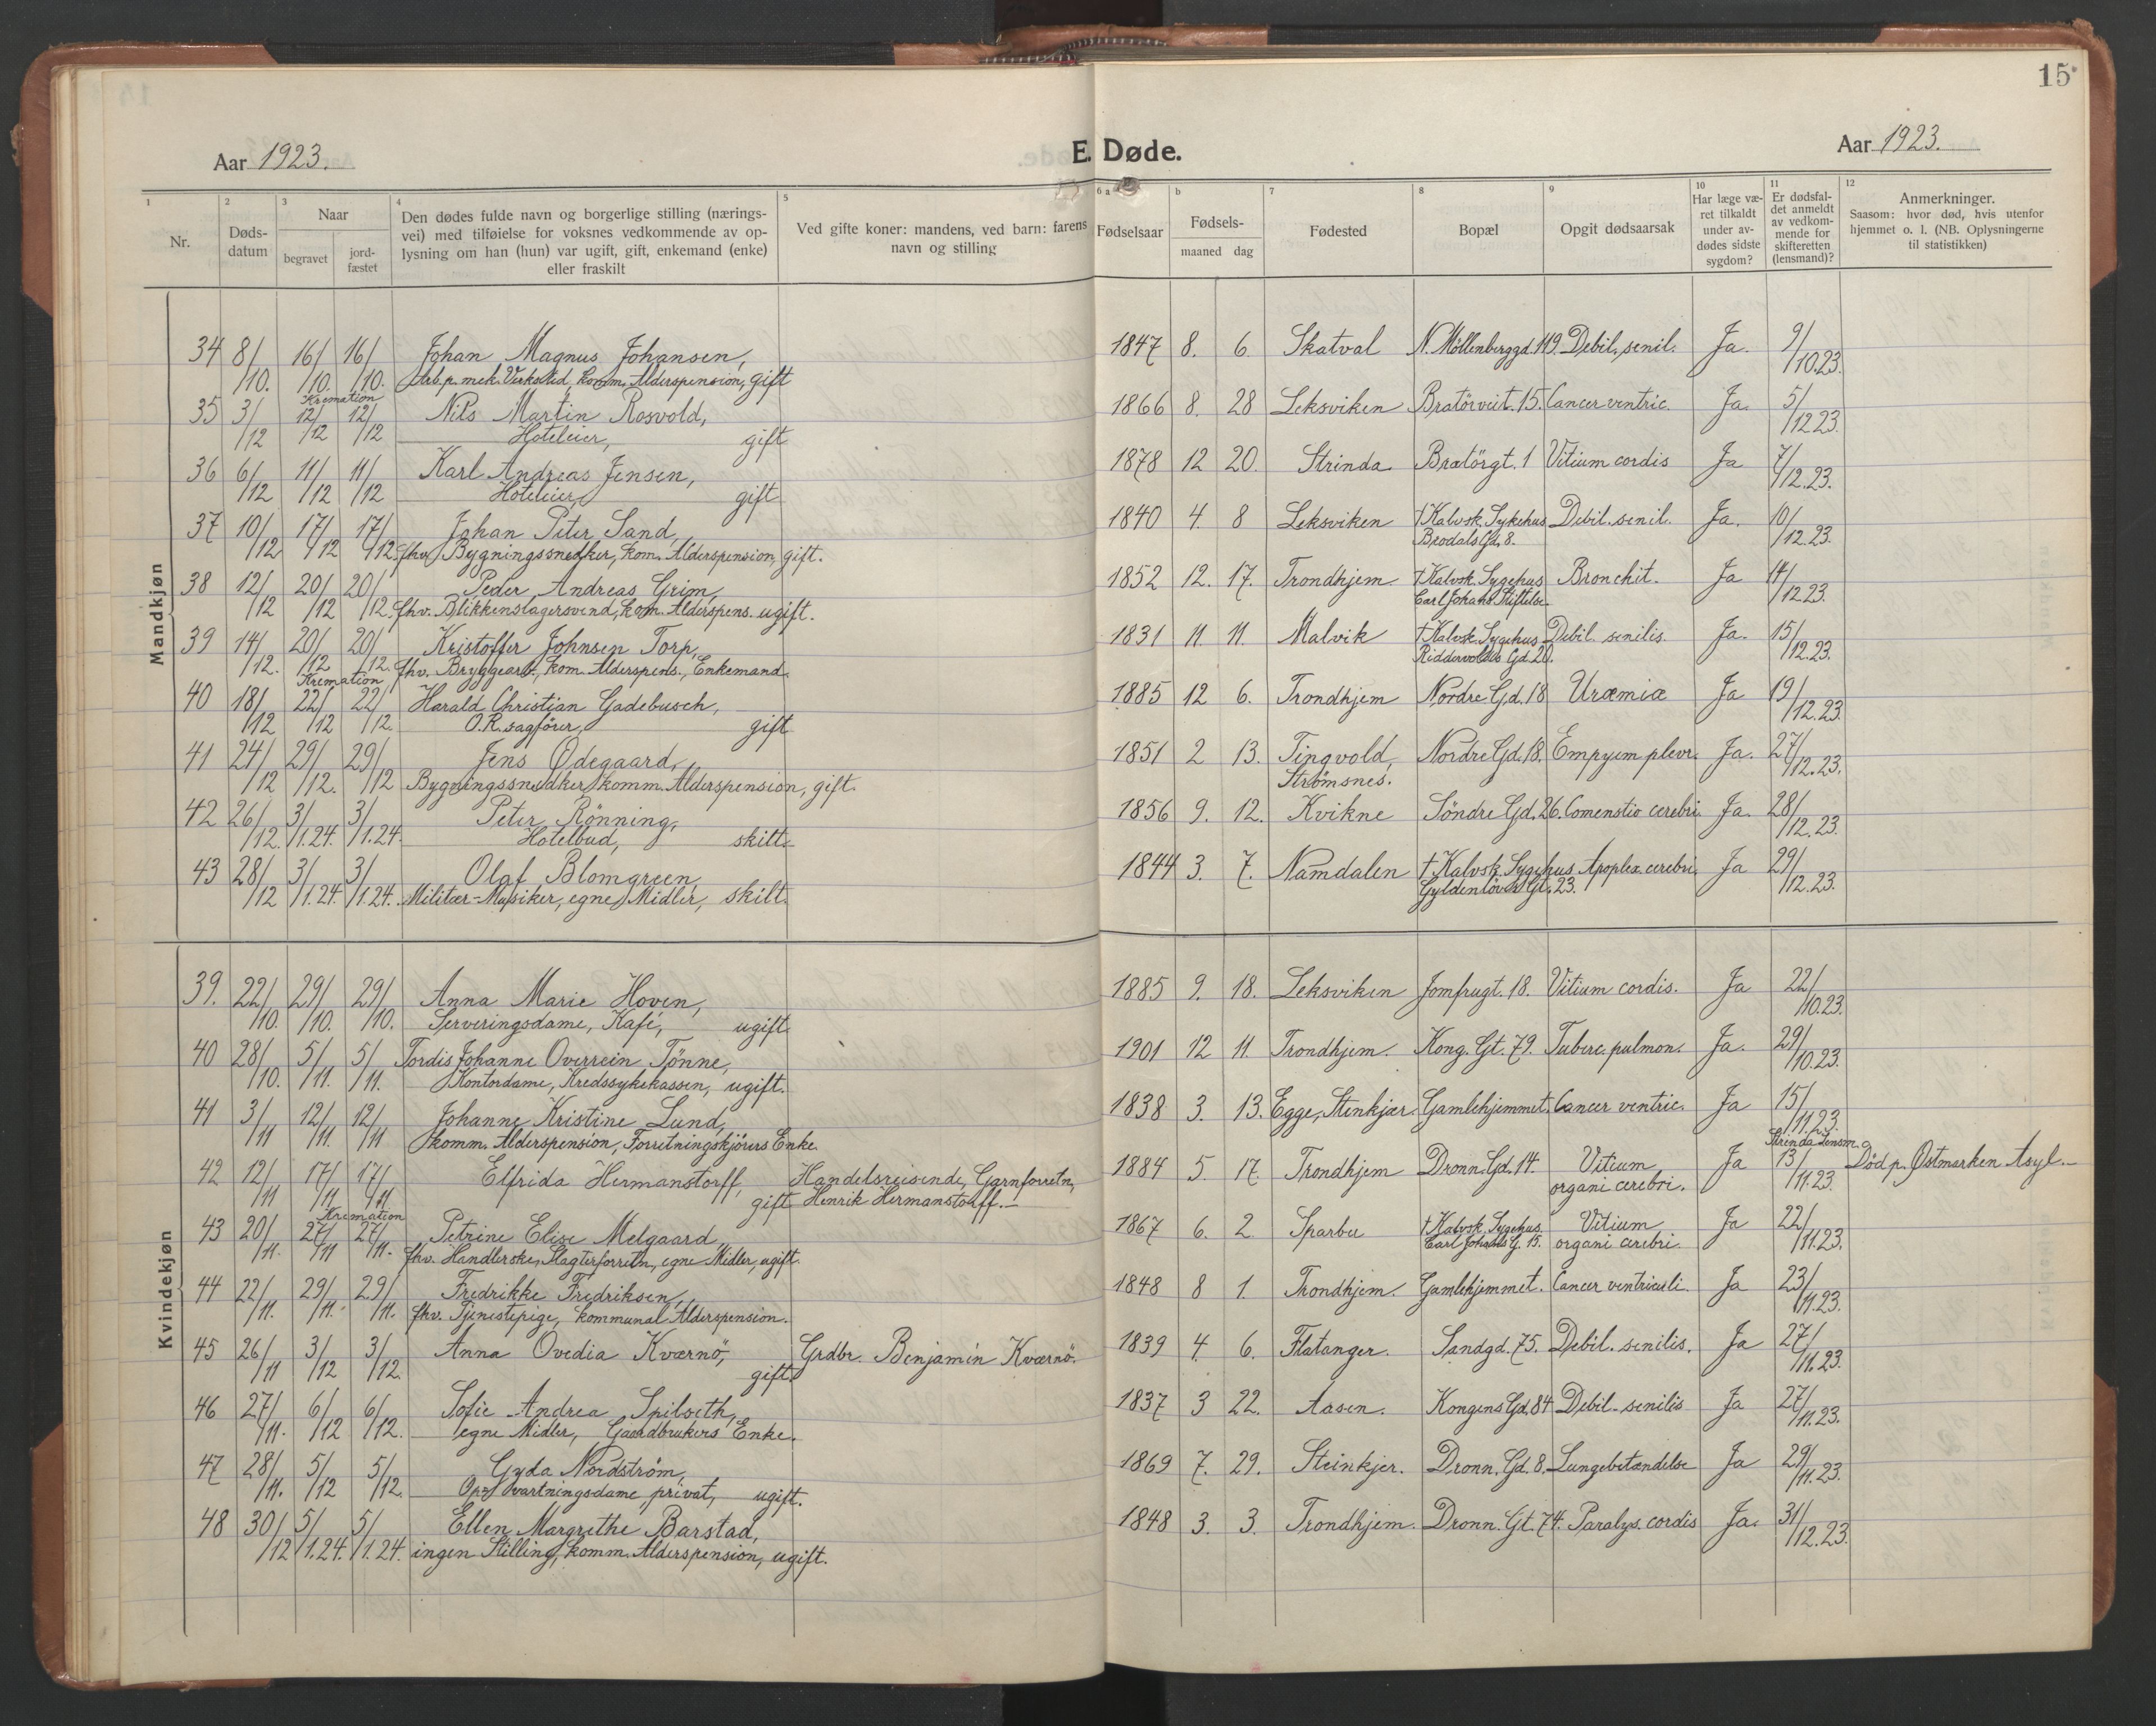 15
Aar 1923.
E. Døde.
Aar 1923.
1 Nr.
2 Døds-datum
3 Naar
begravet
jord-fæstet
4 Den dødes fulde navn og borgerlige stilling (nærings-
vei) med tilføielse for voksnes vedkommende av op-
lysning om han (hun) var ugift, gift, enkemand (enke)
eller fraskilt
5 Ved gifte koner: mandens, ved barn: farens
navn og stilling
6 a Fødselsaar
b Fødsels-
maaned dag
7 Fødested
8 Bopæl
9 Opgit dødsaarsak
10 Har læge væ-
ret tilkaldt
under av-
dødes sidste
sygdom?
11 Er dødsfal-
det anmeldt
av vedkom-
mende for
skifteretten
(lensmand)?
12 Anmerkninger.
Saasom: hvor død, hvis utenfor
hjemmet o. l. (NB. Oplysningerne
til statistikken)
Mandkjøn
34 8/10. 16/10. 16/10. Johan Magnus Johansen, 1847 8. 6. Skatval N. Möllenberggd. 119. Debil. senil. Ja. 9/10.23.
Arb. p. mek. Verksted, komm. Alderspension, gift
Kremation
35 3/12 12/12 12/12 Nils Martin Rosvold, 1866 8. 28 Leksviken Bratörveit. 15. Cancer ventric. Ja. 5/12.23.
Hoteleier, gift
36 6/12 11/12 11/12 Karl Andreas Jensen, 1878 12 20. Strinda Bratörgt. 1 Vitium cordis Ja 7/12.23.
Hoteleier, gift
37 10/12 17/12 17/12. Johan Peter Sand, 1840 4. 8 Leksviken † Kalvsk. Sykehus Debil. senil. Ja. 10/12.23.
fhv. Bygningssnedker, kom. Alderspension, gift. Brodals Gd. 8.
38 12/12 20/12 20/12. Peder Andreas Grim, 1852 12. 17. Trondhjem † Kalvsk. Sygehus Bronchit. Ja 14/12.23.
fhv. Blikkenslagersvend, kom. Alderspens. ugift. Carl Johans Stiftelse
39 14/12. 20/12 20/12. Kristoffer Johnsen Torp, 1831 11. 11. Malvik † Kalvsk. Sygehus Debil senilis. Ja. 15/12.23.
fhv. Bryggearb, kom. Alderspens., Enkemand. Riddervolds Gd. 20.
Kremation
40 18/12 22/12 22/12. Harald Christian Gadebusch, 1885 12 6. Trondhjem Nordre Gd. 18 Uræmia Ja 19/12.23.
O.R. sagförer, gift
41 24/12 29/12. 29/12 Jens Ödegaard, 1851 2 13. Tingvold, Nordre Gd. 18. Empyem plevr. Ja. 27/12.23.
Bygningssnedker, komm. Alderspension, gift. Strömsnes.
42 26/12. 3/1.24. 3/1.24. Peter Rönning, 1856 9. 12. Kvikne Söndre Gd. 26. Comenstio cerebri. Ja. 28/12.23.
Hotelbud, skilt.
43 28/12 3/1.24. 3/1.24. Olaf Blomgreen, 1844 3. 7. Namdalen † Kalvsk. Sygehus Apoplex. cerebri. Ja 29/12.23.
Militær-Musiker, egne Midler, skilt. Gyldenlöves Gt. 23.
Kvindekjøn
39. 22/10. 29/10. 29/10. Anna Marie Hoven, 1885 9. 18. Leksviken Jomfrugt. 18. Vitium cordis. Ja 22/10.23.
Serveringsdame, Kafé, ugift.
40 28/10. 5/11. 5/11. Tordis Johanne Overrein Tönne, 1901 12 11. Trondhjem. Kong. Gt. 79. Tuberc. pulmon. Ja. 29/10.23.
Kontordame, Kredssykekassen, ugift.
41 3/11 12/11. 12/11 Johanne Kristine Lund, 1838 3. 13. Egge, Stenkjær. Gamlehjemmet. Cancer ventric. Ja 15/11.23.
komm. Alderspension, Forretningskjörers Enke.
Strinda Lensm.
42 12/11 17/11. 17/11. Elfrida Hermanstorff, Handelsreisende, Garnforretn, 1884 5. 17. Trondhjem Dronn. Gd. 14. Vitium Ja 13/11.23. Död p. Østmarken Asyl.
gift Henrik Hermanstorff. organi cerebri.
Kremation
43 20/11. 27/11 27/11. Petrine Elise Melgaard, 1867 6. 2 Sparbu † Kalvsk. Sygehus. Vitium Ja 22/11.23.
fhv. Handlerske, Slagterforretn, egne Midler, ugift. Carl Johans G. 15. organi cerebri.
44 22/11. 29/11. 29/11. Fredrikke Fredriksen, 1848 8 1. Trondhjem. Gamlehjemmet. Cancer ventriculi. Ja 23/11.23.
fhv. Tjenestepige, kommunal Alderspension.
45 26/11 3/12 3/12. Anna Ovedia Kværnö, Grdbr. Benjamin Kværnö. 1839 4. 6. Flatanger. Sandgd. 75. Debil. senilis. Ja 27/11.23.
gift.
46 27/11. 6/12 6/12. Sofie Andrea Spilseth, 1837 3 22. Aasen. Kongens Gd. 84 Debil. senilis Ja 27/11.23.
egne Midler, Gaardbrukers Enke.
47 28/11. 5/12 5/12. Gyda Nordström, 1869 7. 29. Steinkjer. Dronn. Gd. 8. Lungebetændelse Ja 29/11.23.
Opvartningsdame, privat, ugift.
48 30/12 5/1.24. 5/1.24. Ellen Margrethe Barstad, 1848 3. 3. Trondhjem. Dronn. Gt. 74. Paralys. cordis Ja. 31/12.23.
ingen Stilling, komm. Alderspension, ugift.